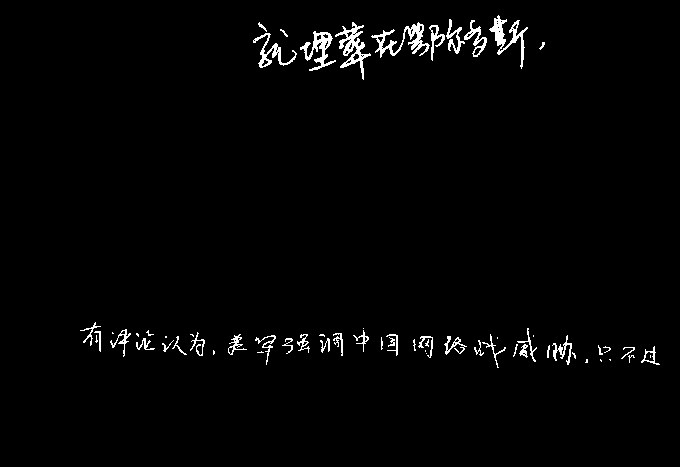 就埋葬在鄂尔多斯，
有评论认为，美军强调中国网络战威胁，只不过